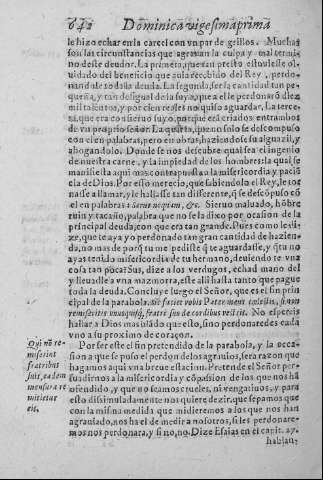 642 Dominica vigesimaprima
le hizo echar en la carcel con vn par de grillos. Muchas
son las circunstancias que agrauan la culpa y mal termi-
no deste deudor. La primera, que tan presto estuuiesse ol-
uidado del beneficio que auia recebido del Rey, perdo-
nandole toda la deuda. La segunda, ser la cantidad tan pe-
queña, y tan desigual de la suya, que a el le perdonarõ diez
mil talentos, y por cien reales no quiso aguardar. La terce-
ra, que era conseruo suyo, porque erã criados entrambos
de vn proprio señor. La quarta, que no solo se descompuso
con el en palabras, pero en obras, haziendose su alguazil, y
ahogandolo. Donde se nos descubre qual sea el ingenio
de nuestra carne, y la impiedad de los hombres: la qual se
manifiesta aqui mas contrapuesta a la misericordia y pacié
cia de Dios. Por esso merecio, que sabiendolo el Rey, le tor
nasse a llamar, y le hallasse tan differente, q̃ se descõpuso cõ
el en palabras: Serue nequam, &c. Sieruo maluado, hõbre
ruin y tacaño, palabra que no se la dixo por ocasion de la
principal deuda, con que era tan grande. Pues como le di-
ze, que te aya yo perdonado tan gran cantidad de hazien-
da, no mas de porq̃ tu me pediste q̃ te aguardasse, y q̃ tu no
ayas tenido misericordia de tu hermano, deuiendo te vna
cosa tan poca? Sus, dize a los verdugos, echad mano del
y lleualde a vna mazmorra, este alli hasta tanto que pague
toda la deuda. Concluye luego el Señor, que es el fin prin
cipal de la parabola. Sic faciet vobis Pater meus cœlestis, si non
remiseritis vnusquisq; fratri suo de cordibus vestris. No espereis
hallar a Dios mas blãdo que esto, si no perdonaredes cada
vno a su proximo de coraçon.
Por ser este el fin pretendido de la parabola, y la occa-
sion a que se puso el perdon de los agrauios, sera razon que
hagamos aqui vna breue estacion. Pretende el Señor per-
suadirnos a la misericordia y cõpassion de los que nos hã
ofendido, y que no seamos crueles, ni vengatiuos, y para
esto dissimuladamente nos quiere dezir, que sepamos que
con la misma medida que midieremos a los que nos han
agrauiado, nos ha el de medir a nosotros, si les perdonare-
mos nos perdonara, y si no, no. Dize Esaias en el capit. 47.
hablan-
Qui nõ re-
miserint
fratribus
suis, eadem
mensura re
mittetur
eis.